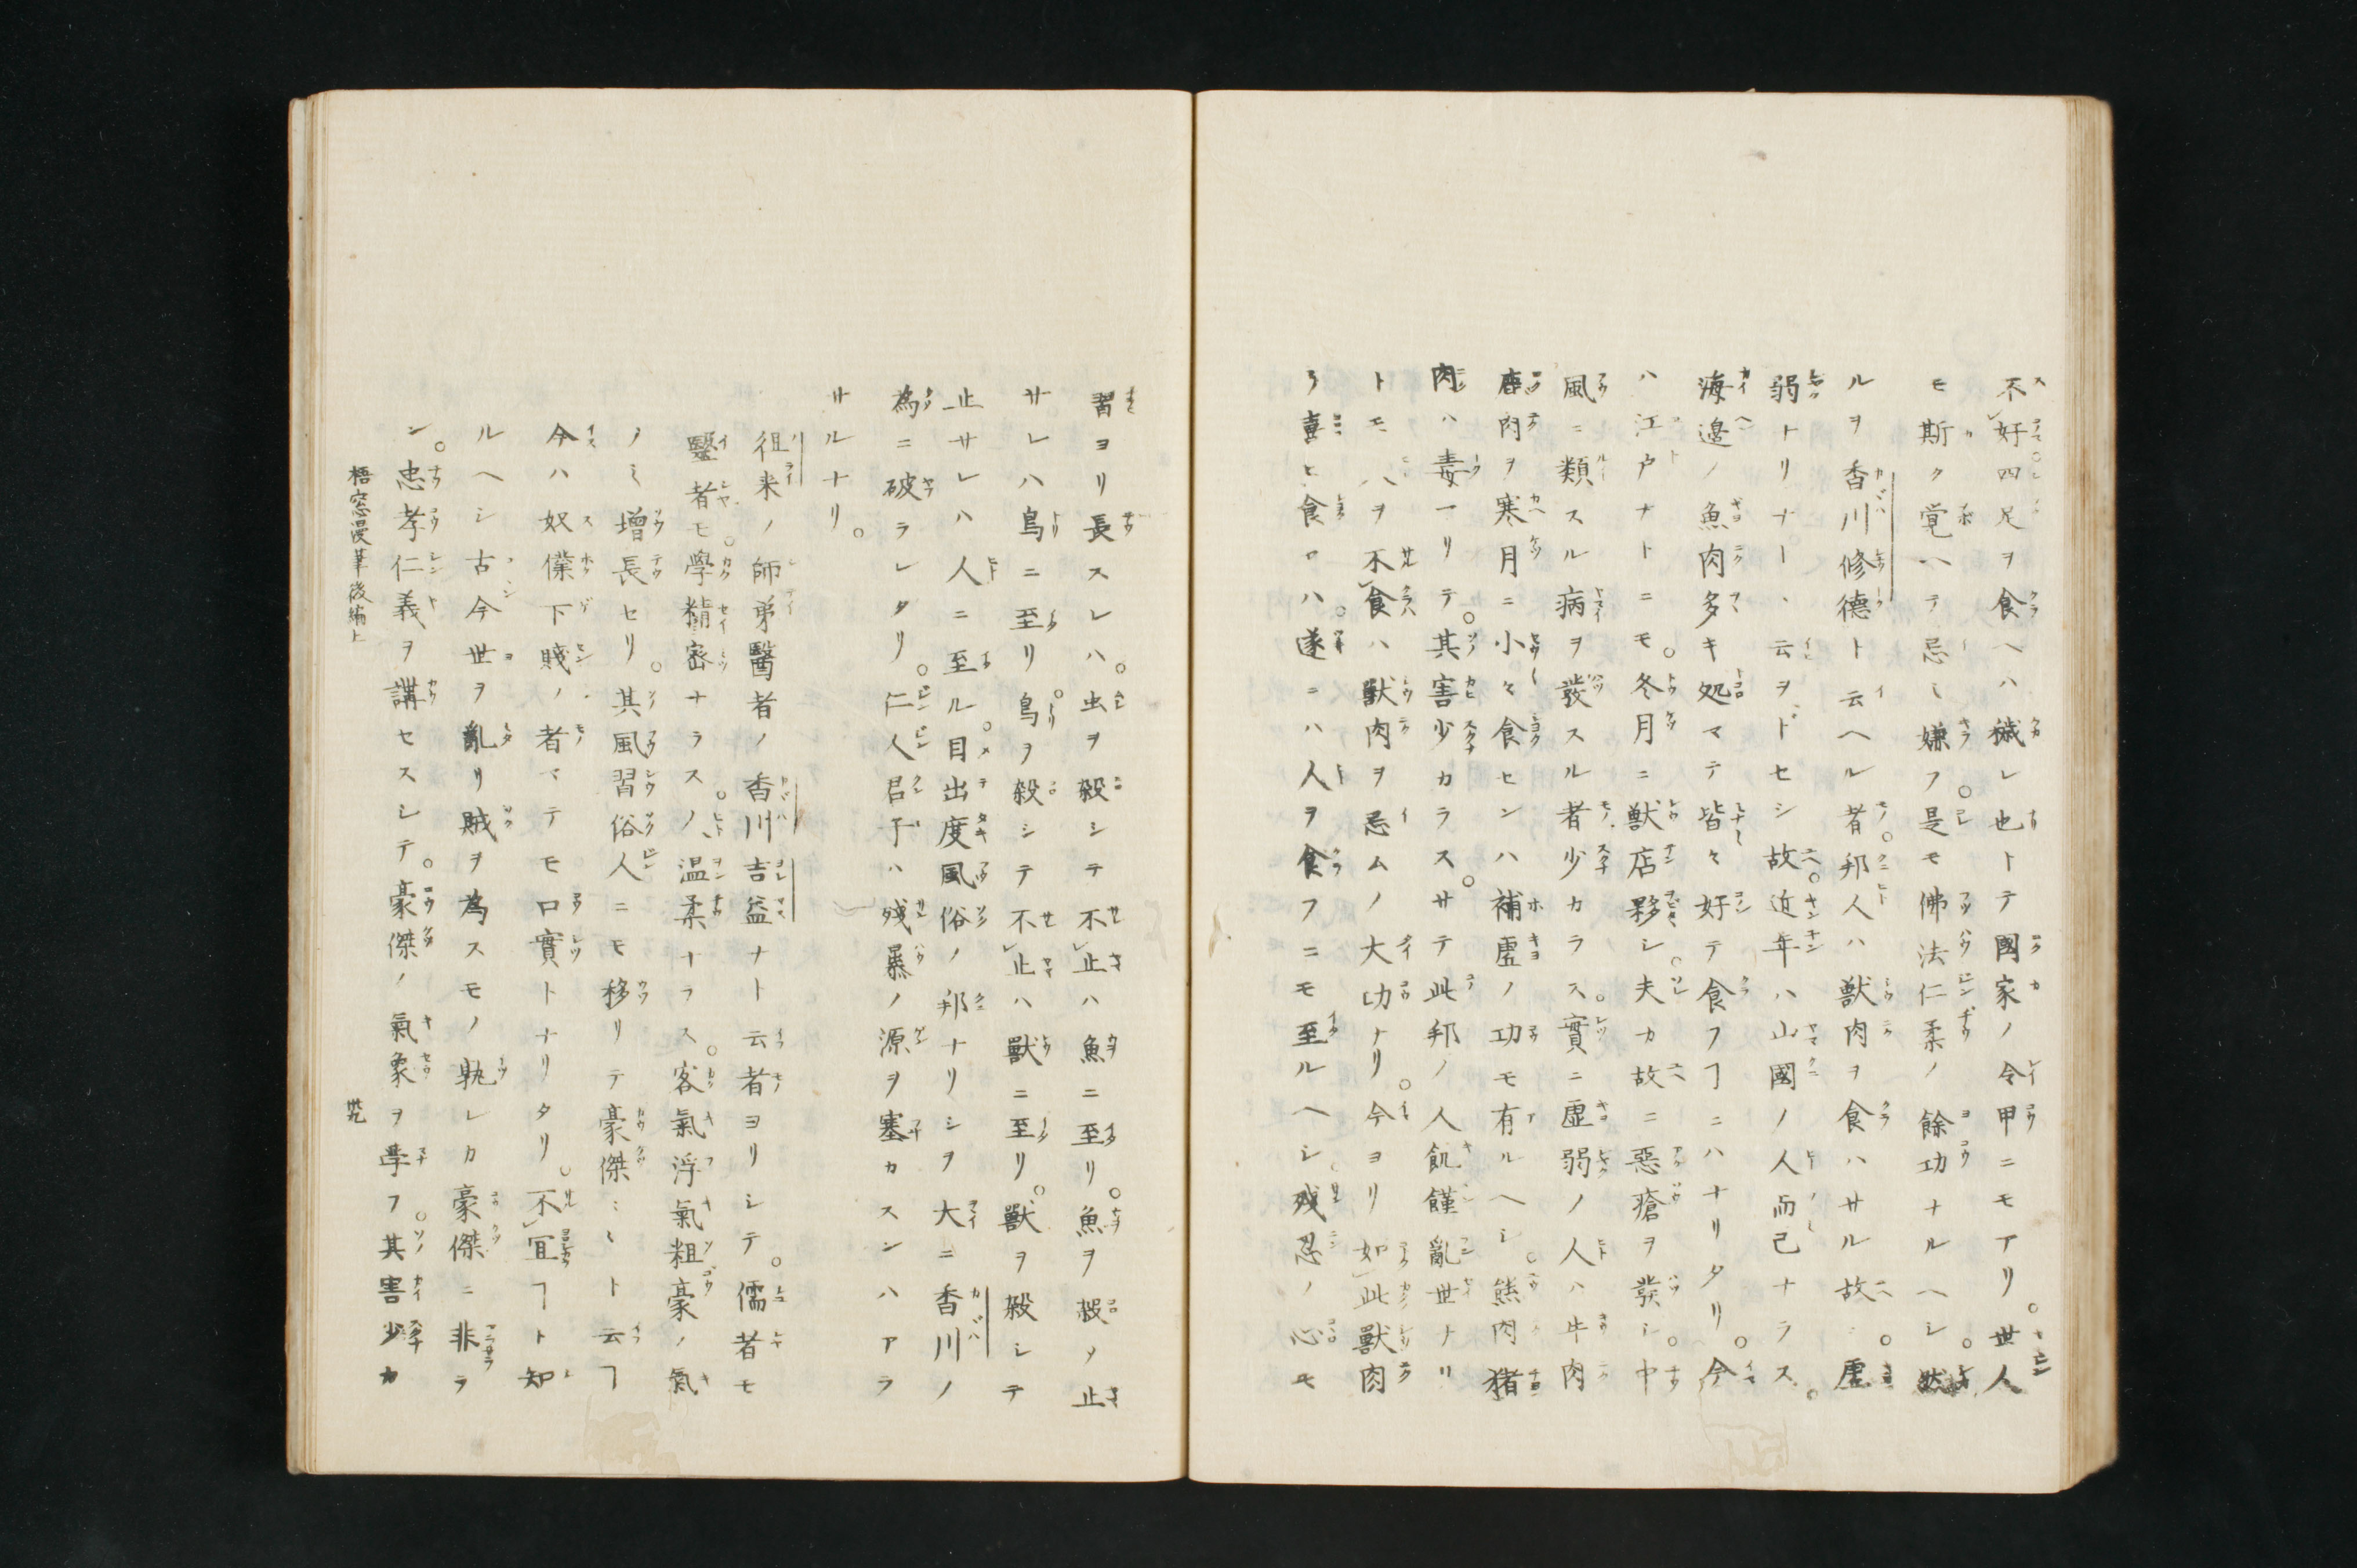 不好四足ヲ食ヘハ穢レ也トテ國家ノ令甲ニモアリ。世人
モ斯ク覚ヘテ忌ミ嫌フ。是モ佛法仁柔ノ餘功ナルヘシ。然
ルヲ香川修德ト云ヘル者。邦人ハ獣肉ヲ食ハサル故。虚
弱ナリナト、云ヲドセシ故。近年ハ山國ノ人而已ナラス。
海邉ノ魚肉多キ処マテ皆々好テ食フヿニハナリタリ。今
ハ江戸ナトニモ。冬月ニ獣店夥シ。夫カ故ニ惡瘡ヲ發シ。中
風ニ類スル病ヲ發スル者少カラス。實ニ虚弱ノ人ハ牛肉
鹿肉ヲ寒月ニ小々食センハ補虚ノ功モ有ルヘシ。熊肉猪
肉ハ毒アリテ。其害少カラス。サテ此邦ノ人飢饉亂世ナリ
トモ人ヲ不食ハ獣肉ヲ忌ムノ大功ナリ。今ヨリ如此獣肉
ヲ喜ヒ食ヤハ。遂ニハ人ヲ食フニモ至ルヘシ。残忍ノ心モ
習ヨリ長スレハ。虫ヲ殺シテ不止ハ魚ニ至リ。魚ヲ殺メ止
サレハ鳥ニ至リ。鳥ヲ殺シテ不止ハ獸ニ至リ。獸ヲ殺シテ
止サレハ人ニ至ル。目出度風俗ノ邦ナリシヲ大ニ香川ノ
為ニ破ラレタリ。仁人君子ハ残暴ノ源ヲ塞カスンハアラ
サルナリ。
徂来ノ師弟醫者ノ香川吉益ナト云者ヨリシテ。儒者モ
醫者モ。學精密ナラス。人温柔ナラス。客氣浮氣粗豪ノ氣
ノミ增長セリ。其風習俗人ニモ移リテ豪傑ミミト云ヿ
今ハ奴僕下賤ノ者マテモ口實トナリタリ。不宜ヿト知
ルヘシ古今世ヲ亂リ賊ヲ為スモノ孰レカ豪傑ニ非ラ
ン。忠孝仁義ヲ講セスシテ。豪傑ノ氣象ヲ学フ。其害少カ
梧窓漫筆後編上